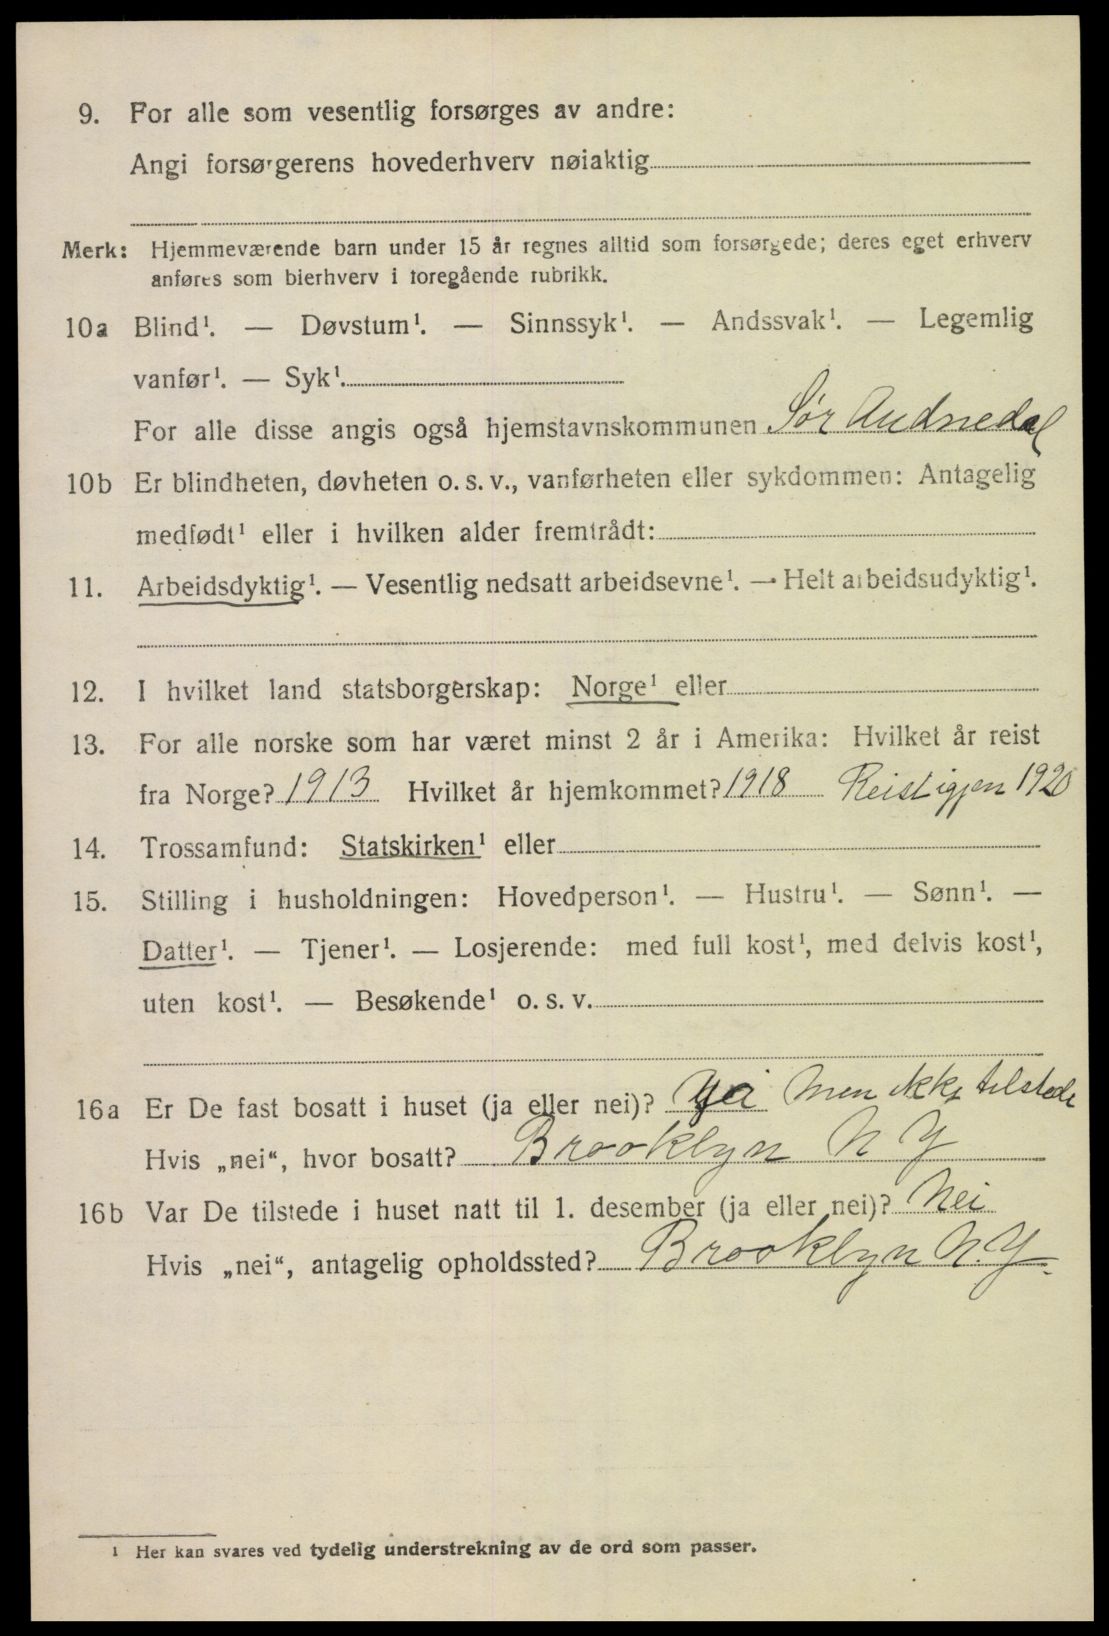 9. For alle som vesentlig forsørges av andre:
Angi forsørgerens hovederhverv nøiaktig
Merk: Hjemmeværende barn under 15 år regnes alltid som forsørgede; deres eget erhverv
anføres som bierhverv i foregående rubrikk.
10a Blind¹. — Døvstum¹. — Sinnssyk¹. — Andssvak¹. — Legemlig
vanfør¹. — Syk¹.
For alle disse angis også hjemstavnskommunen Sør Audnedal
10b Er blindheten, døvheten o. s. v., vanførheten eller sykdommen: Antagelig
medfødt¹ eller i hvilken alder fremtrådt:
11. Arbeidsdyktig¹. — Vesentlig nedsatt arbeidsevne¹. — Helt arbeidsudyktig¹.
12. I hvilket land statsborgerskap: Norge¹ eller
13. For alle norske som har været minst 2 år i Amerika: Hvilket år reist
fra Norge? 1913 Hvilket år hjemkommet? 1918 Reist igjen 1920
14. Trossamfund: Statskirken¹ eller
15. Stilling i husholdningen: Hovedperson¹. — Hustru¹. — Sønn¹. —
Datter¹. — Tjener¹. — Losjerende: med full kost¹, med delvis kost¹,
uten kost¹. — Besøkende¹ o. s. v.
16a Er De fast bosatt i huset (ja eller nei)? Ja Men ikke tilstede
Hvis „nei“, hvor bosatt? Brooklyn N Y
16b Var De tilstede i huset natt til 1. desember (ja eller nei)? Nei
Hvis „nei“, antagelig opholdssted? Brooklyn N. Y.
¹ Her kan svares ved tydelig understrekning av de ord som passer.